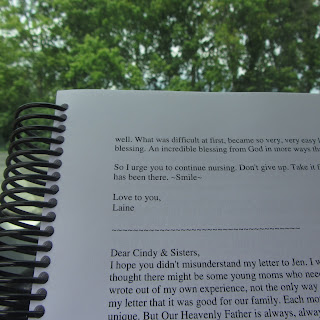 well. What was difficult at first, became so very, very easy
blessing. An incredible blessing from God in more ways
So I urge you to continue nursing. Don't give up. Take it
has been there. ~Smile~
Love to you,
Laine
~~~~~~~~~~~~~~~~~~~~~~~~~~~~~~~~~~~~~~~~
Dear Cindy & Sisters,
I hope you didn't misunderstand my letter to Jen. I
thought there might be some young moms who
wrote out of my own experience, not the only way
my letter that it was good for our family. Each
unique. But Our Heavenly Father is always,